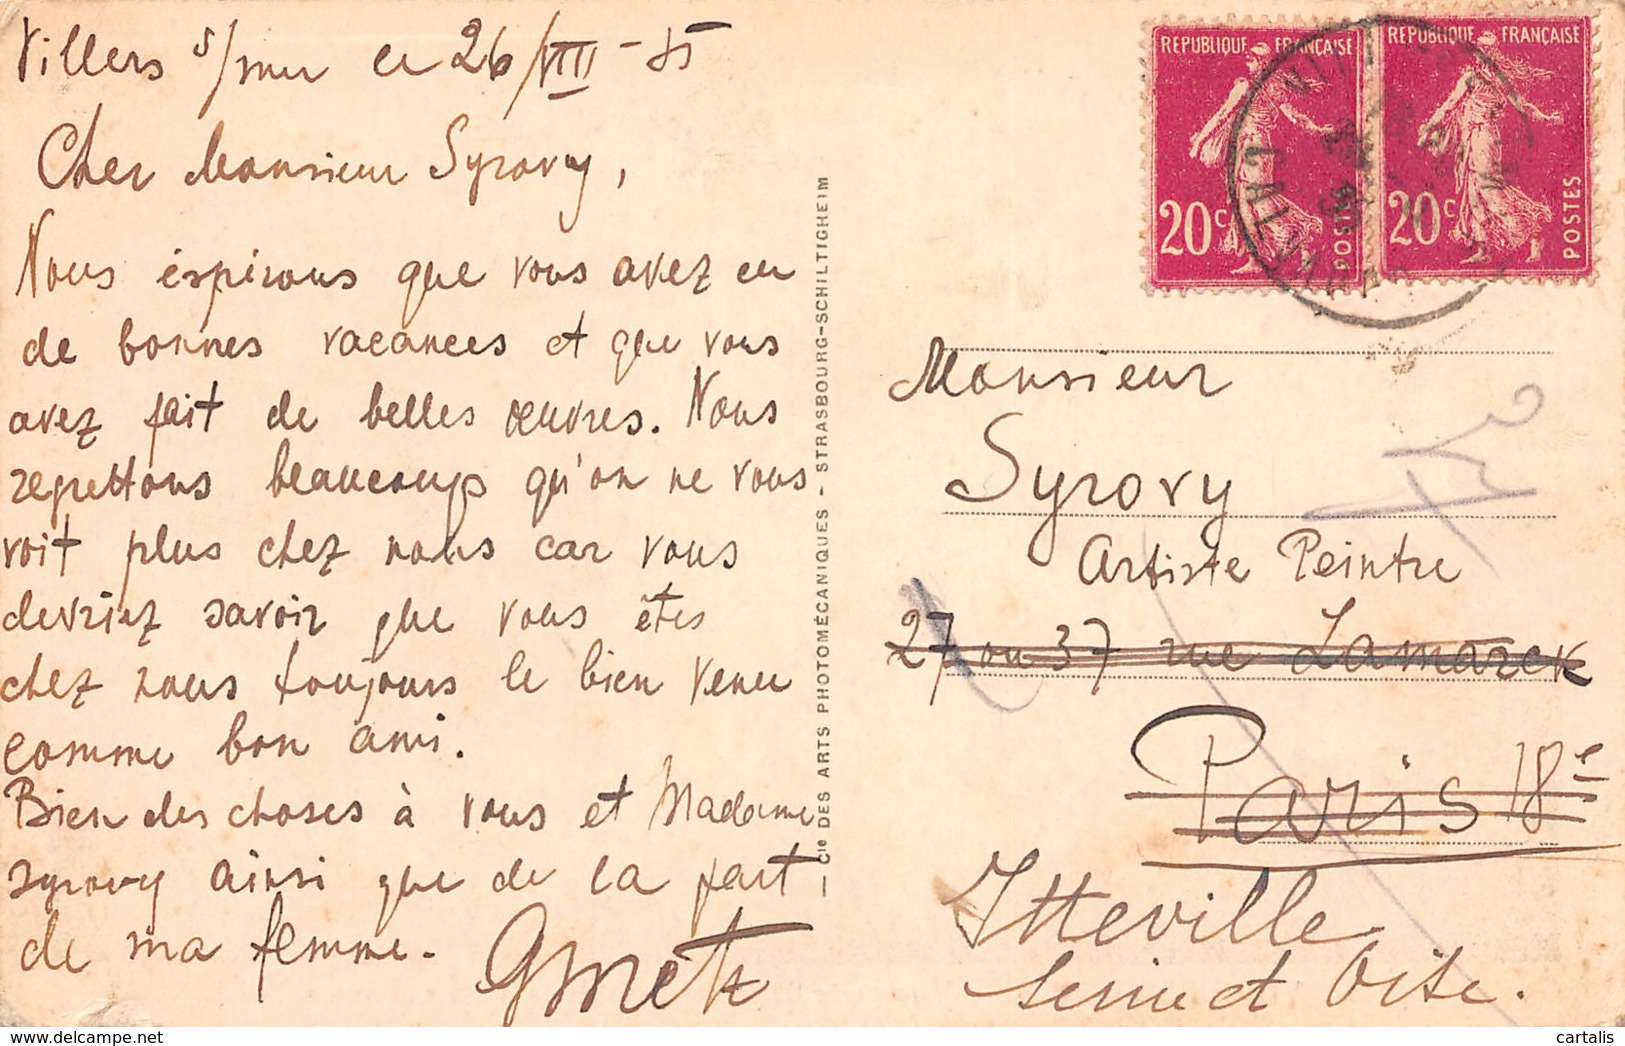 Villers s/mer le 26/VIII - 35
Cher Monsieur Syrovy,
Nous éspirons que vous avez eu
de bonnes vacances et que vous
avez fait de belles œuvres. Nous
regrettons beaucoup qu'on ne vous
voit plus chez nous car vous
devriez savoir que vous êtes
chez nous toujours le bien venu
comme bon ami.
Bien des choses à vous et Madame
Syrovy ainsi que de la part
de ma femme.
GMetz
— Cie DES ARTS PHOTOMÉCANIQUES - STRASBOURG-SCHILTIGHEIM
REPUBLIQUE FRANÇAISE
20c
POSTES
REPUBLIQUE FRANÇAISE
20c
POSTES
CALVADOS
Monsieur
Syrovy
Artiste Peintre
27 ou 37 rue Lamarck
Paris 18e
Itteville
Seine et Oise.
cartalis